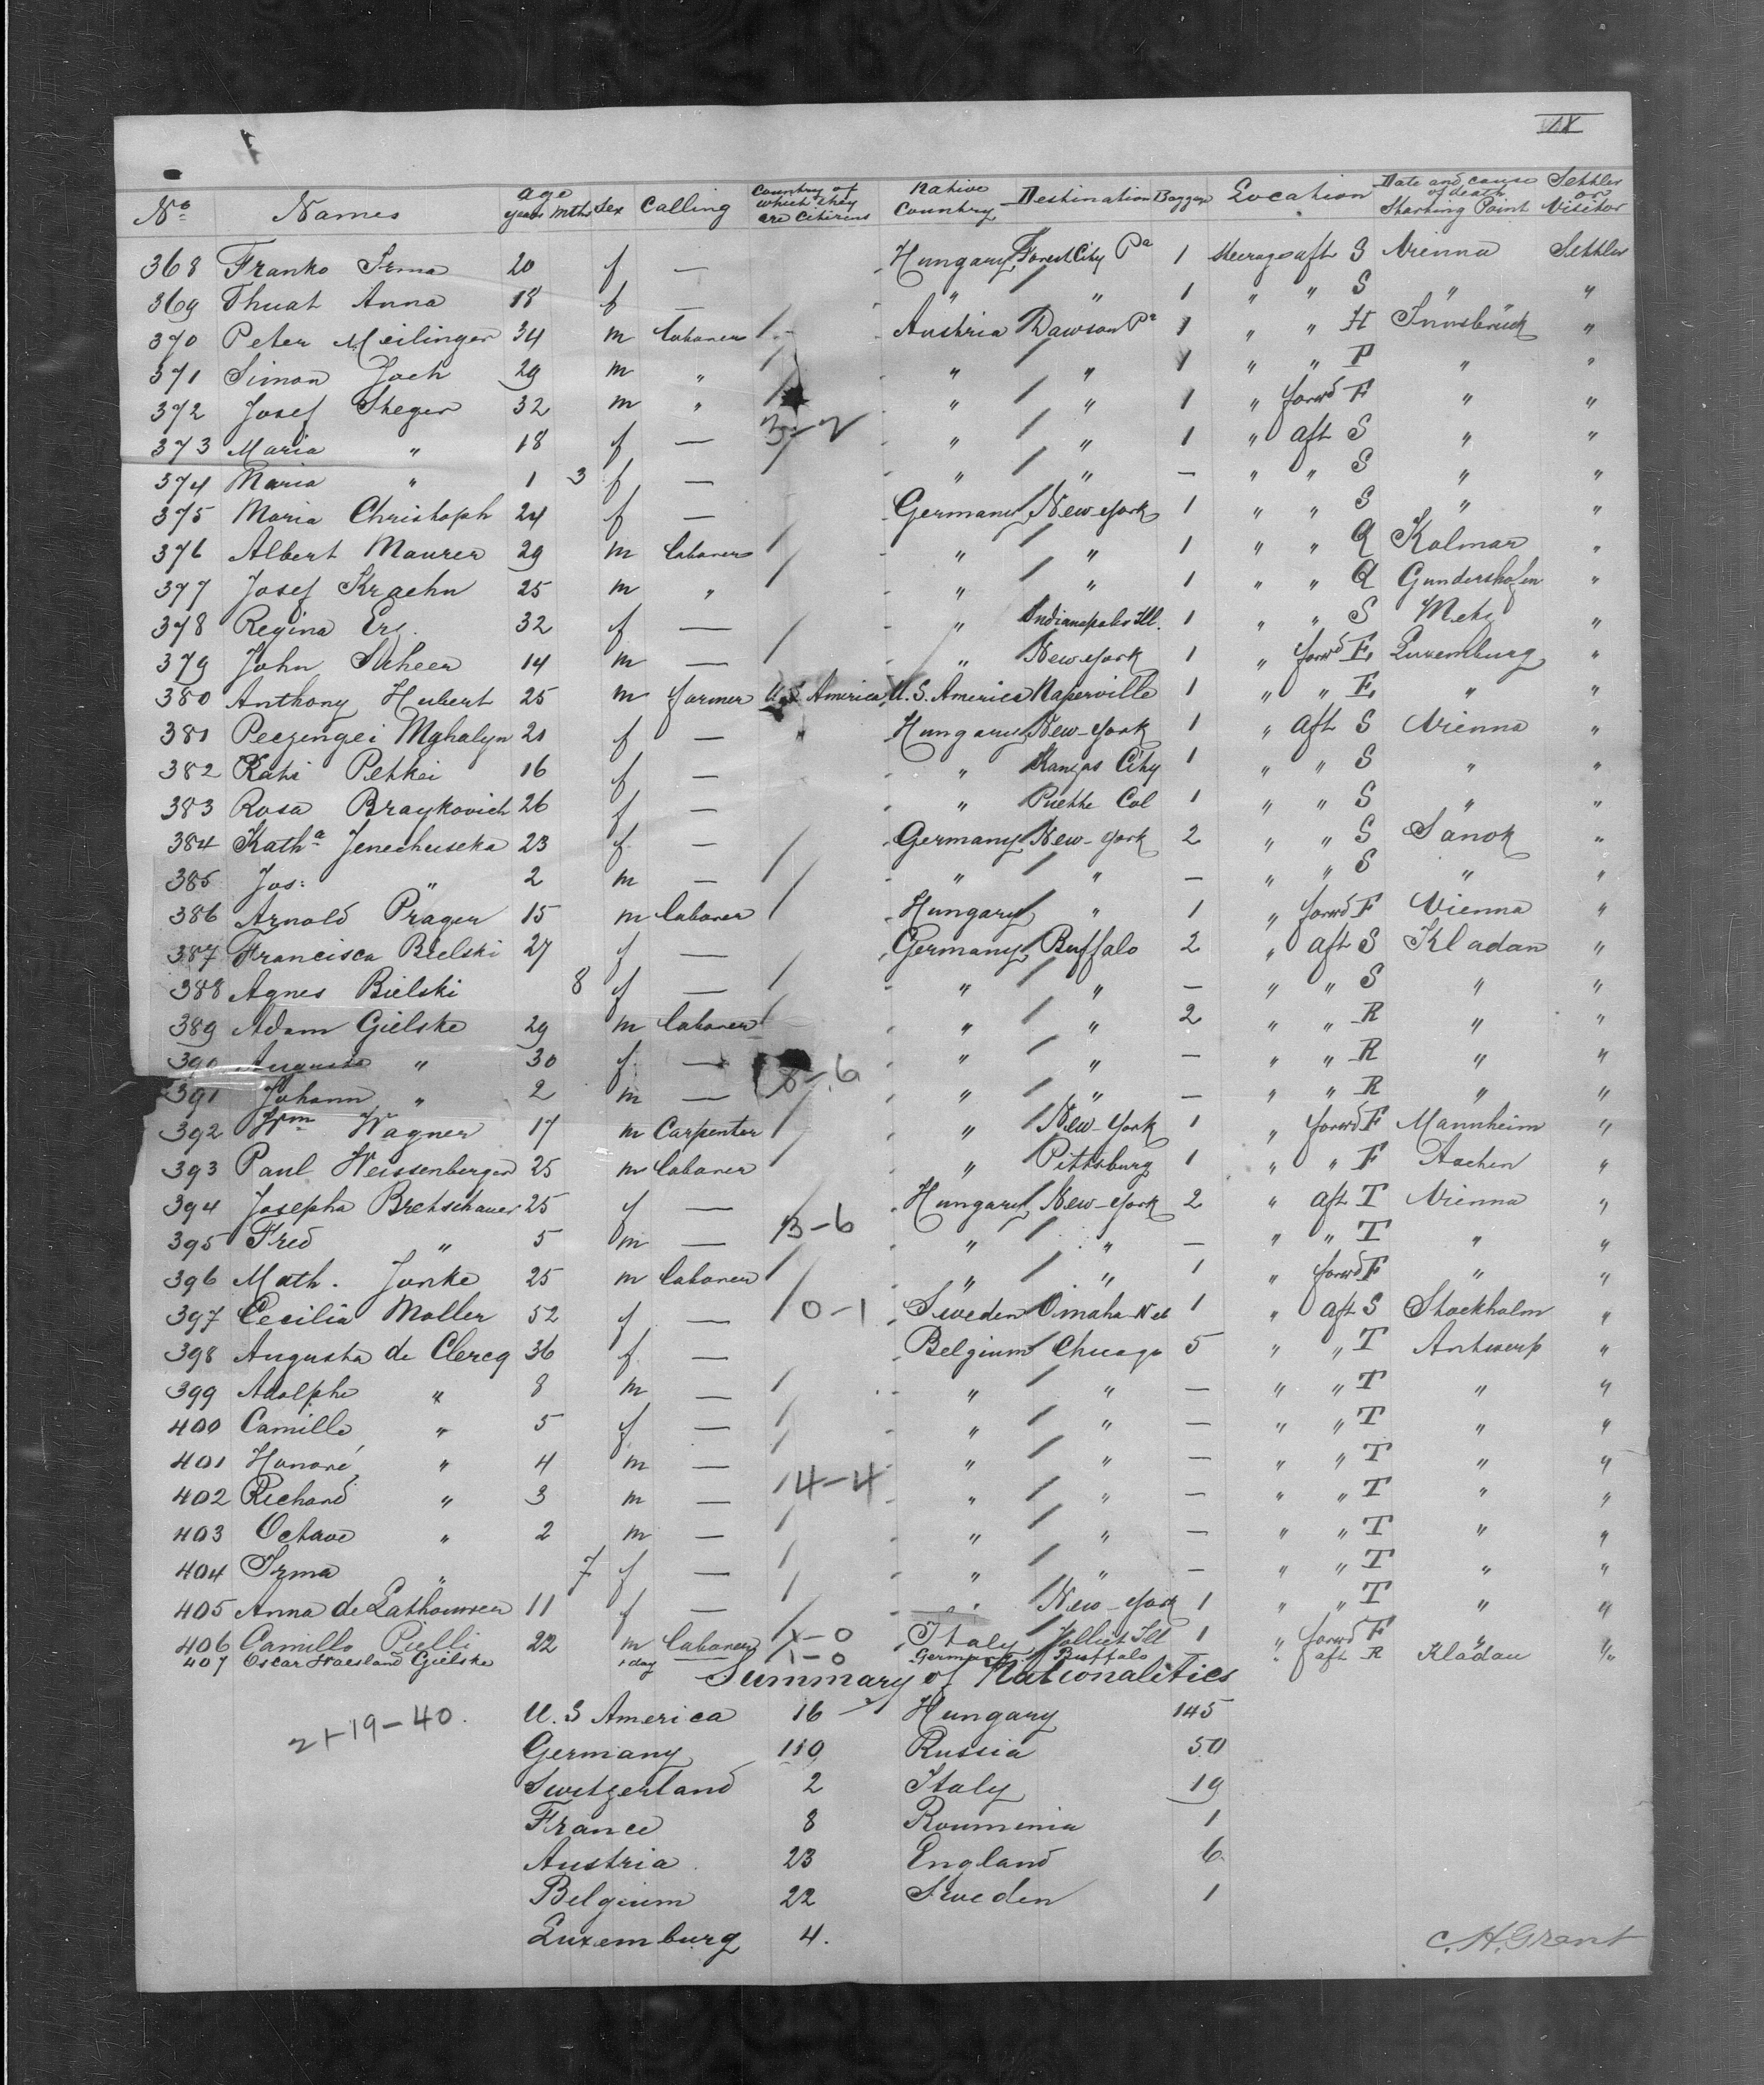 IX
No Names age years mths Sex Calling Country of which they are Citizens Native Country Destination Baggage Location Date and cause of death Starting Point Settler or Visitor
368 Franko Irma 20 f — Hungary Forest City Pa 1 Steerage aft S Vienna Settler
369 Thuat Anna 18 f — " " 1 " " S " "
370 Peter Meilinger 34 m laborer Austria Dawson Pa 1 " " H Innsbruck "
371 Simon Joch 29 m " " " 1 " " P " "
372 Josef Steger 32 m " " " 1 " forwd F " "
373 Maria " 18 f — 3-2 " " 1 " aft S " "
374 Maria " 1 3 f — " " — " " S " "
375 Maria Christoph 24 f — Germany New-York 1 " " S " "
376 Albert Maurer 29 m laborer " " 1 " " Q Kolmar "
377 Josef Kraehn 25 m " " " 1 " " Q Gundershofen "
378 Regina 32 f — " Indianapolis Ill. 1 " " S Metz "
379 John Scheer 14 m — " New York 1 " forwd E Luxemburg "
380 Anthony Hubert 25 m farmer U.S. America U.S. America Naperville 1 " " E " "
381 Peczengei Mghalyn 21 f — Hungary New-York 1 " aft S Vienna "
382 Kati Petkei 16 f — " Kansas City 1 " " S " "
383 Rosa Braykovich 26 f — " Col 1 " " S " "
384 Katha Jenechuseka 23 f — Germany New-York 2 " " S Sanok "
385 Jos: " 2 m — " " — " " S " "
386 Arnold Prager 15 m laborer Hungary " 1 " forwd F Vienna "
387 Francisca Bielski 27 f — Germany Buffalo 2 " aft S Kladau "
388 Agnes Bielski 8 f — " " — " " S " "
389 Adam Gielske 29 m laborer " " 2 " " R " "
390 Augusta " 30 f — 8-6 " " — " " R " "
391 Johann " 2 m — " " — " " R " "
392 Wm Wagner 17 m Carpenter " New-York 1 " forwd F Mannheim "
393 Paul Weissenberger 25 m laborer " Pittsburg 1 " " F Aachen "
394 Josepha Bretschauer 25 f — Hungary New-York 2 " aft T Vienna "
395 Fred " 5 m — 13-6 " " — " " T " "
396 Math. Junke 25 m laborer " " 1 " forwd F " "
397 Cecilia Moller 52 f — 0-1 Sweden Omaha Neb 1 " aft S Stockholm "
398 Augusta de Clercq 36 f — Belgium Chicago 5 " " T Antwerp "
399 Adolphe " 8 m — " " — " " T " "
400 Camille " 5 f — " " — " " T " "
401 Honoré " 4 m — " " — " " T " "
402 Richard " 3 m — 4-4 " " — " " T " "
403 Octave " 2 m — " " — " " T " "
404 Irma " 7 f — " " — " " T " "
405 Anna de Lathouwer 11 f — " New-York 1 " " T " "
406 Camillo Pielli 22 m laborer 1-0 Italy Jolliet Ill 1 " forwd F " "
407 Oscar Waesland Gielske 1 day — 1-0 Germany Buffalo — " aft R Kladau "
Summary of Nationalities
21-19-40.
U.S America 16 Hungary 145
Germany 110 Russia 50
Switzerland 2 Italy 19
France 8 Rouminia 1
Austria 23 England 6
Belgium 22 Sweden 1
Luxemburg 4.
C. H. Grant